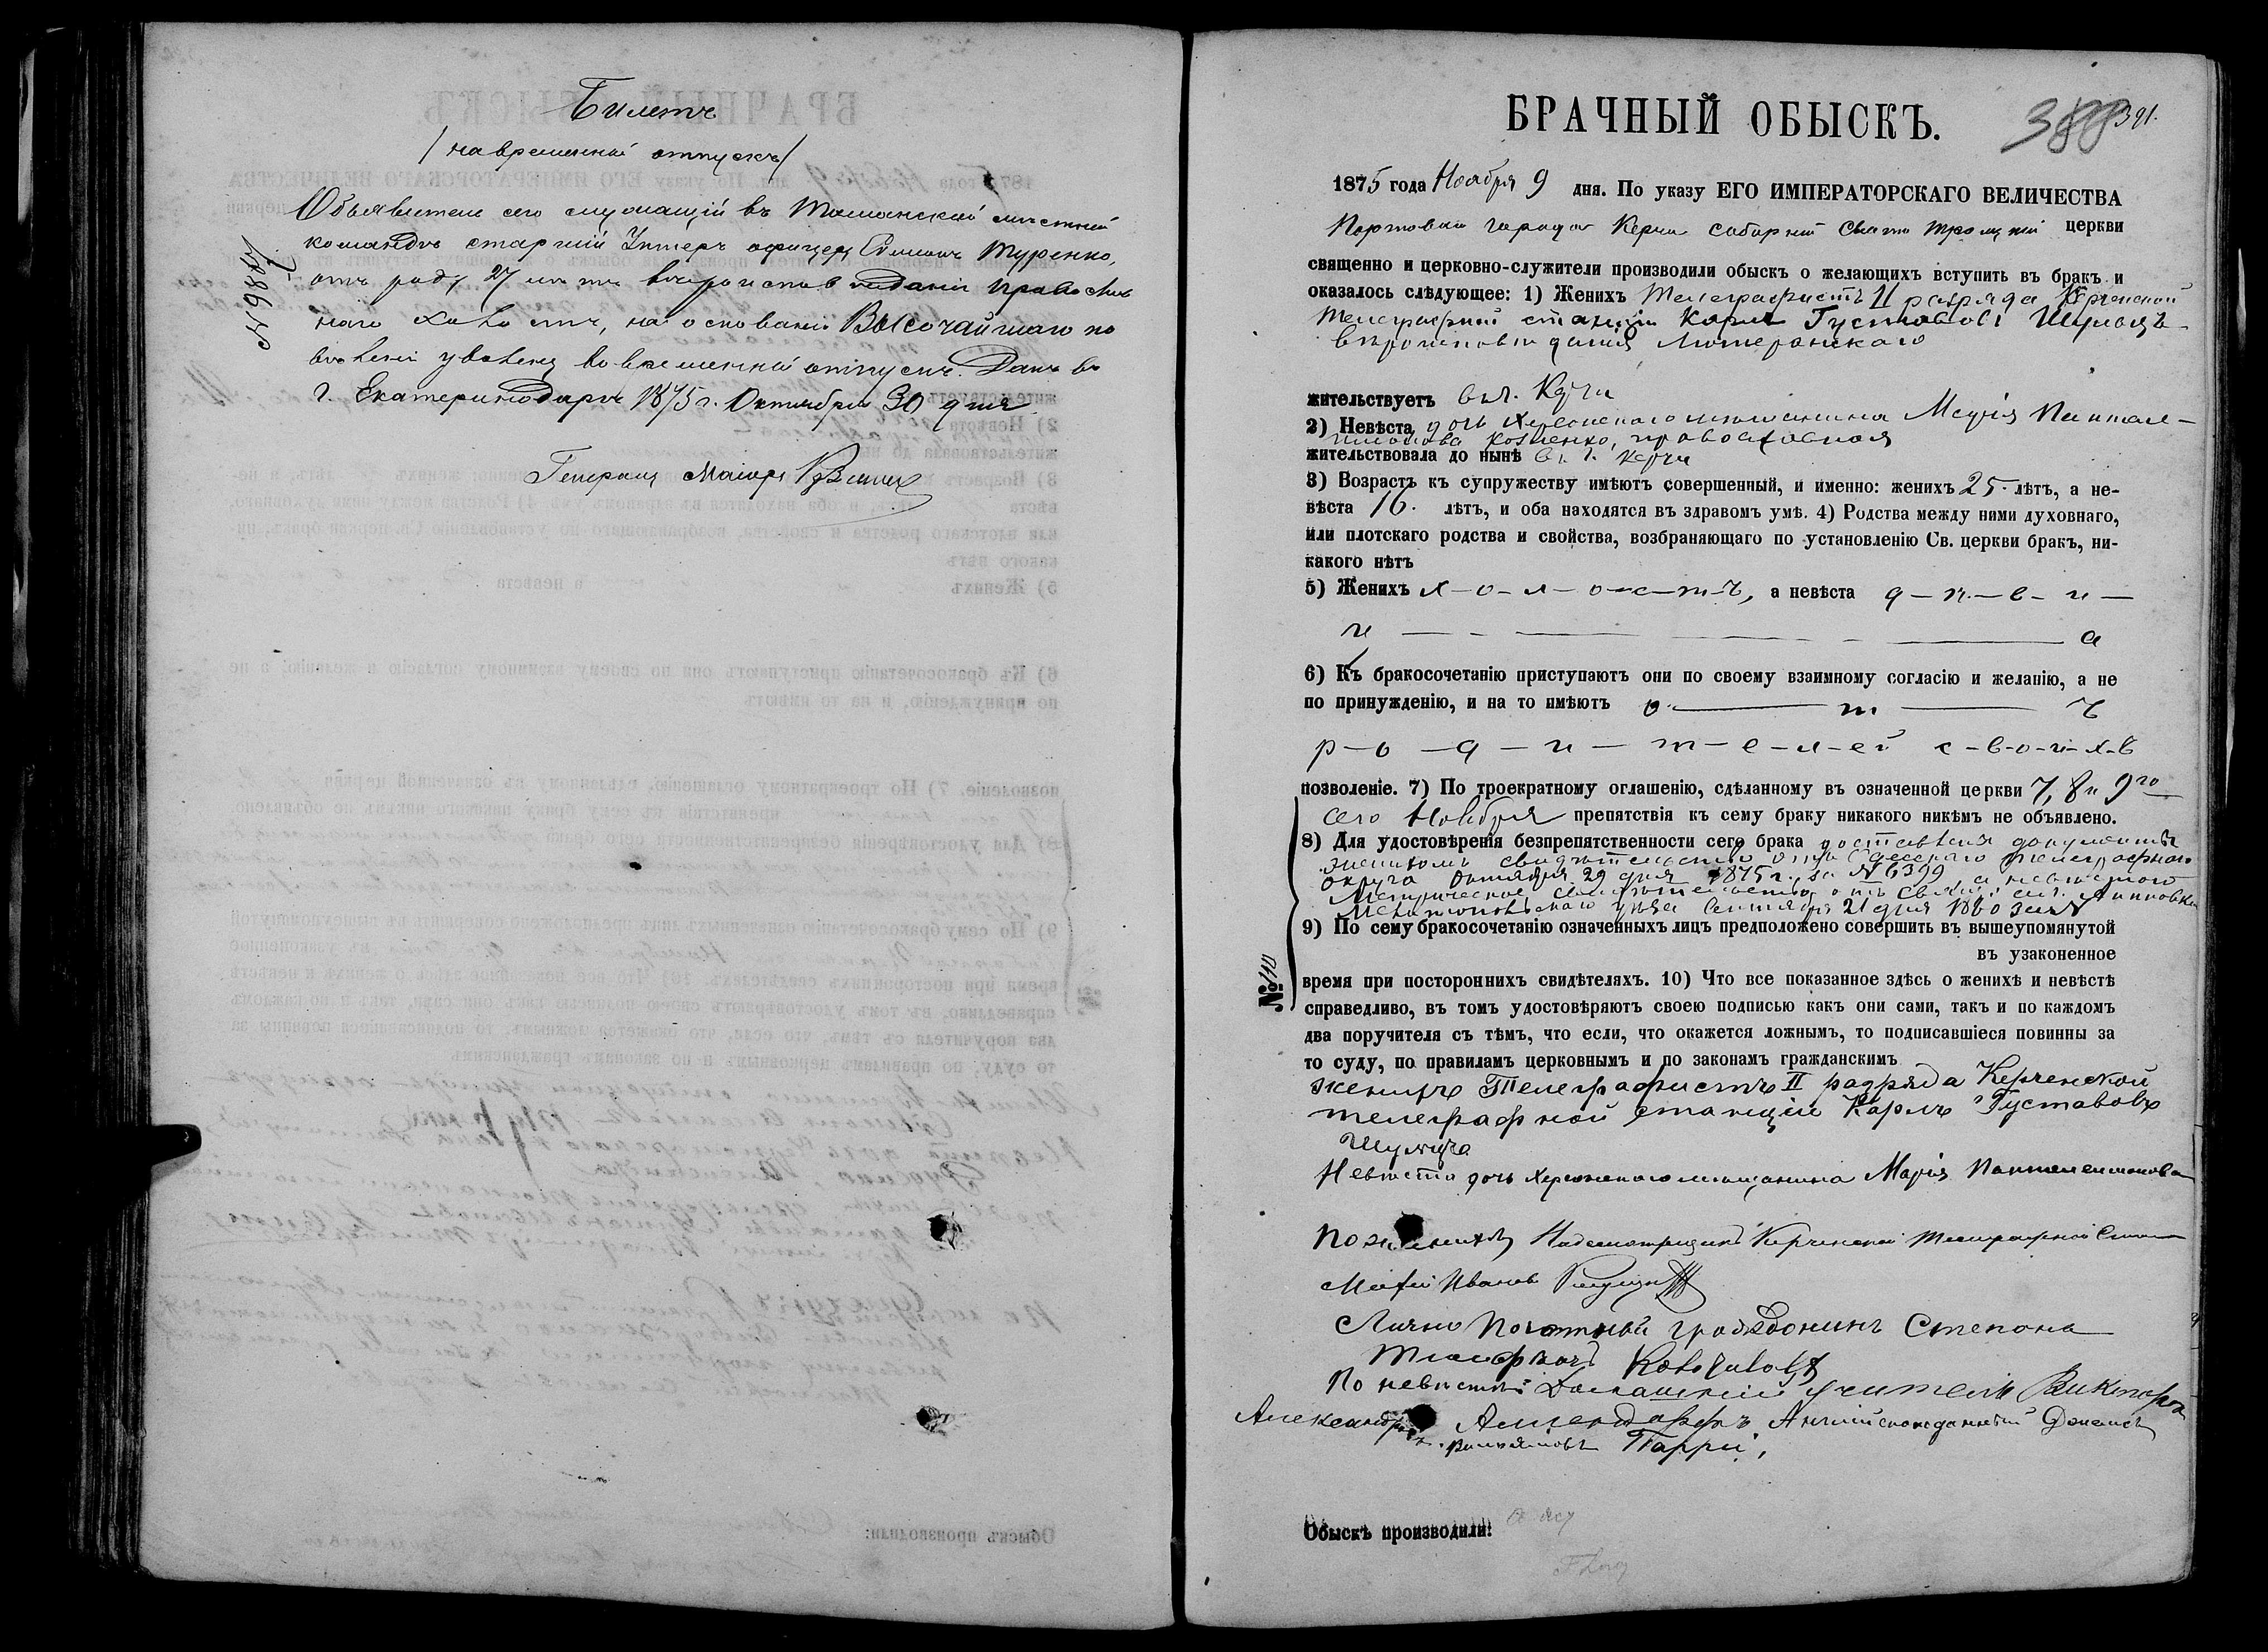 Билетъ
/на временный отпускъ/
Объявитель сего служащій въ Таманской мѣстной
командѣ старшій Унтеръ офицеръ Симонъ Туренко,
отъ роду 27 лѣтъ вѣроисповѣданія Православ
наго холостъ, на основаніи Высочайшаго по
велѣнія уволенъ во временный отпускъ. Данъ въ
г. Екатеринодарѣ 1875 г. Октября 30 дня
Генералъ Маіоръ
№ 9887
БРАЧНЫЙ ОБЫСКЪ.
388 391.
1875 года Ноября 9 дня. По указу ЕГО ИМПЕРАТОРСКАГО ВЕЛИЧЕСТВА
Портоваго города Керчи соборной Свято Троицкой церкви
священно и церковно-служители производили обыскъ о желающихъ вступить въ бракъ и
оказалось слѣдующее: 1) Женихъ Телеграфистъ II разряда Керченской
Телеграфной станціи Карлъ Густавовъ Шульцъ
вѣроисповѣданія Лютеранскаго
жительствуетъ въ г. Керчи
2) Невѣста дочь Херсонскаго мѣщанина Марія Пантеле-
имонова Козленко, православная
жительствовала до нынѣ въ г. Керчи
3) Возрастъ къ супружеству имѣютъ совершенный, и именно: женихъ 25. лѣтъ, а не-
вѣста 16. лѣтъ, и оба находятся въ здравомъ умѣ. 4) Родства между ними духовнаго,
или плотскаго родства и свойства, возбраняющаго по установленію Св. церкви бракъ, ни-
какого нѣтъ
5) Женихъ х-о-л-о-с-т-ъ, а невѣста д-ѣ-в-и-
ц — а
6) Къ бракосочетанію приступаютъ они по своему взаимному согласію и желанію, а не
по принужденію, и на то имѣютъ о — т — ъ
р-о-д-и-т-е-л-ей с-в-о-и-х-ъ
позволеніе. 7) По троекратному оглашенію, сдѣланному въ означенной церкви 7, 8 и 9го
сего Ноября препятствія къ сему браку никакого никѣмъ не объявлено.
8) Для удостовѣренія безпрепятственности сего брака доставлены документы
женихомъ свидѣтельство отъ Одесскаго телеграфнаго
округа Октября 29 дня 1875 г. за № 6399, а невѣстою
Метрическое свидѣтельство отъ Свящ. сел. Анновки
Сентября 21 дня
9) По сему бракосочетанію означенныхъ лицъ предположено совершить въ вышеупомянутой
въ узаконенное
время при постороннихъ свидѣтеляхъ. 10) Что все показанное здѣсь о женихѣ и невѣстѣ
справедливо, въ томъ удостовѣряютъ своею подписью какъ они сами, такъ и по каждомъ
два поручителя съ тѣмъ, что если, что окажется ложнымъ, то подписавшіеся повинны за
то суду, по правиламъ церковнымъ и по законамъ гражданскимъ
№ 110
женихъ Телеграфистъ II разряда Керченской
телеграфной станціи Карлъ Густавовъ
Шульцъ
Невѣста дочь Херсонскаго мѣщанина Марія Пантелеимонова
По женихѣ Надсмотрщикъ Керченской Телеграфной Стан
Иванов
Лично Почотный гражданинъ Степонъ
По невѣстѣ Домашній учитель Викторъ
Александръ Англійскоподданный Джемсъ
Вильямовъ Парри,
Обыскъ производили: